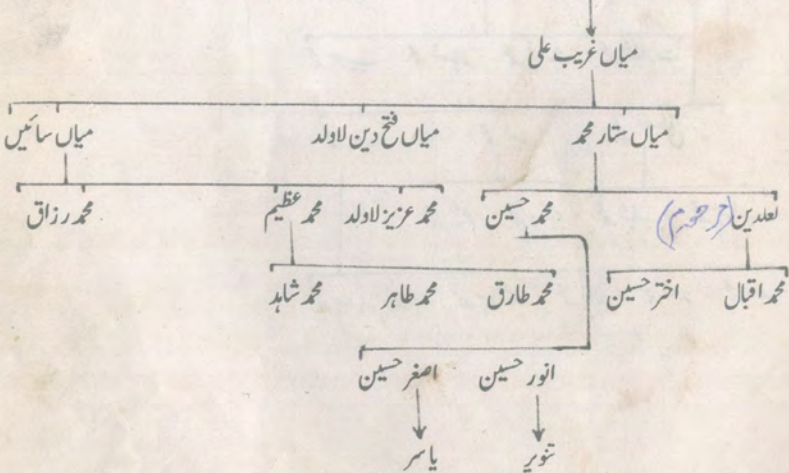 میاں غریب علی
میاں ستار محمد میاں فتح دین لاولد میاں سائیں
لعلدین (مرحوم) محمد حسین محمد عزیز لاولد محمد عظیم محمد رزاق
محمد اقبال اختر حسین محمد طارق محمد طاہر محمد شاہد
انور حسین اصغر حسین
تنویر یاسر